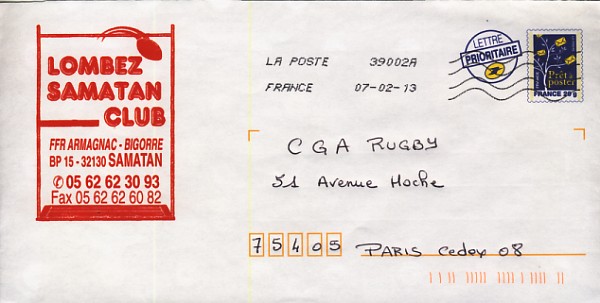 LOMBEZ
SAMATAN
CLUB
FFR ARMAGNAC - BIGORRE
BP 15 - 32130 SAMATAN
✆ 05 62 62 30 93
Fax 05 62 62 60 82
LA POSTE 39002A
FRANCE 07-02-13
LETTRE
PRIORITAIRE
Prêt à
poster
FRANCE 20g
CGA RUGBY
51 Avenue Hoche
75405 PARIS Cedex 08